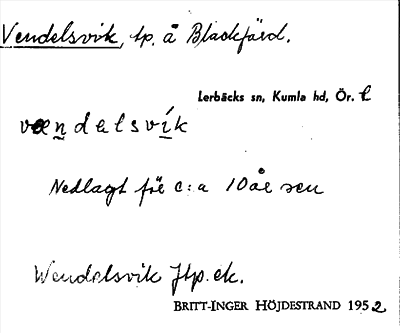 Vendelsvik, tp. å Blackfärd.
Lerbäcks sn, Kumla hd, Ör. l
væn̲delsví̲k
Nedlagt för c:a 10 år sen
Wendelsvik Jtp. ek.
BRITT-INGER HÖJDESTRAND 1952